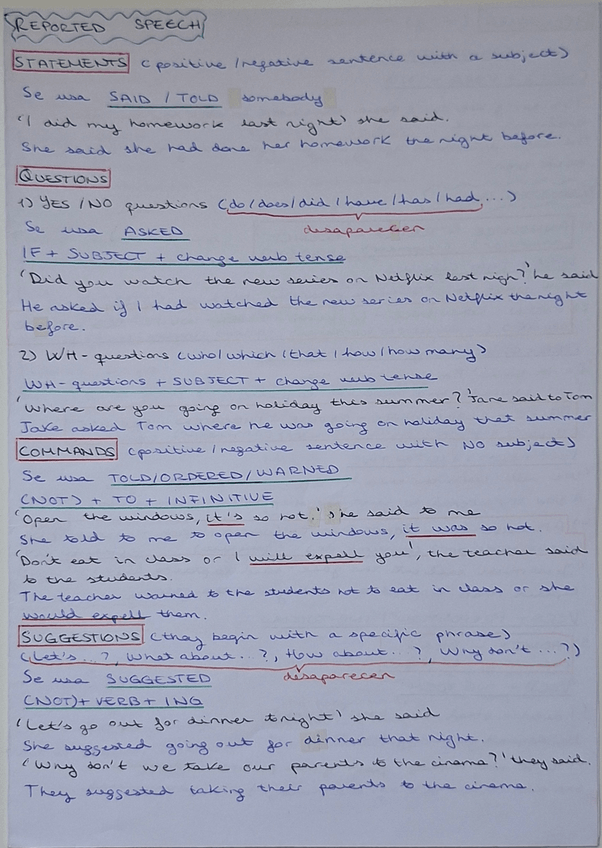 REPORTED SPEECH
STATEMENTS (positive/negative sentence with a subject)
Se usa SAID / TOLD somebody
'I did my homework last night' she said.
She said she had done her homework the night before.
QUESTIONS
1) YES/NO questions (do/does/did/have/has/had,...)
Se usa ASKED desaparecen
IF + SUBJECT + change verb tense
'Did you watch the new series on Netflix last nigh?' he said
He asked if I had watched the new series on Netflix the night
before.
2) WH-questions (who/which/that/how/how many)
WH-questions + SUBJECT + change verb tense
'Where are you going on holiday this summer?' Jane said to Tom
Jake asked Tom where he was going on holiday that summer
COMMANDS (positive/negative sentence with NO subject)
Se usa TOLD/ORDERED/WARNED
(NOT) + TO + INFINITIVE
'Open the windows, it's so hot.' she said to me
She told to me to open the windows, it was so hot.
'Don't eat in class or I will expell you', the teacher said
to the students.
The teacher warned to the students not to eat in class or she
would expell them.
SUGGESTIONS (they begin with a specific phrase)
(Let's...?, What about...?, How about...?, Why don't...?)
Se usa SUGGESTED desaparecen
(NOT) + VERB + ING
'Let's go out for dinner tonight' she said
She suggested going out for dinner that night.
'Why don't we take our parents to the cinama?' they said.
They suggested taking their parents to the cinema.